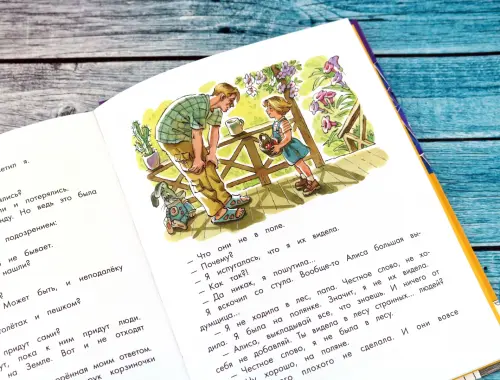 етил я.
лись?
и и потерялись.
нду. Но ведь это была
подозрением:
не бывает.
нашли?
Может быть, и неподалёку
олётах и пешком?
придут сами?
тут, пока к ним придут люди.
на Земле. Вот и не отходят
рённая моим ответом.
рук корзиночки
— Что они не в поле.
— Почему?
— Я испугалась, что я их видела.
— Как так?!
— Да никак, я пошутила...
Я вскочил со стула. Вообще-то Алиса большая вы-
думщица...
— Я не ходила в лес, папа. Честное слово, не хо-
дила. Я была на полянке. Значит, я не их видела.
— Алиса, выкладывай все, что знаешь. И ничего от
себя не добавляй. Ты видела в лесу странных... людей?
— Честное слово, я не была в лесу.
— Ну хорошо, на поляне.
плохого не сделала. И они вовсе